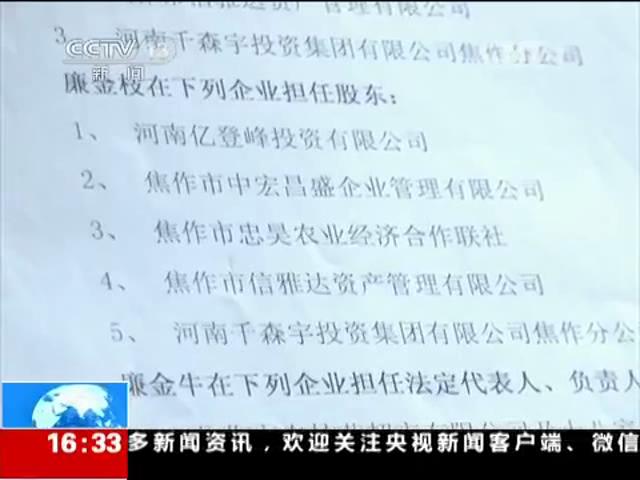 市信雅达资产管理有限公司
3、河南千森宇投资集团有限公司焦作分公司
CCTV 13
新闻
廉金枝在下列企业担任股东：
1、 河南亿登峰投资有限公司
2、 焦作市中宏昌盛企业管理有限公司
3、 焦作市忠昊农业经济合作联社
4、 焦作市信雅达资产管理有限公司
5、 河南千森宇投资集团有限公司焦作分公
廉金牛在下列企业担任法定代表人、负责人
有限公司
16:33 多新闻资讯，欢迎关注央视新闻客户端、微信